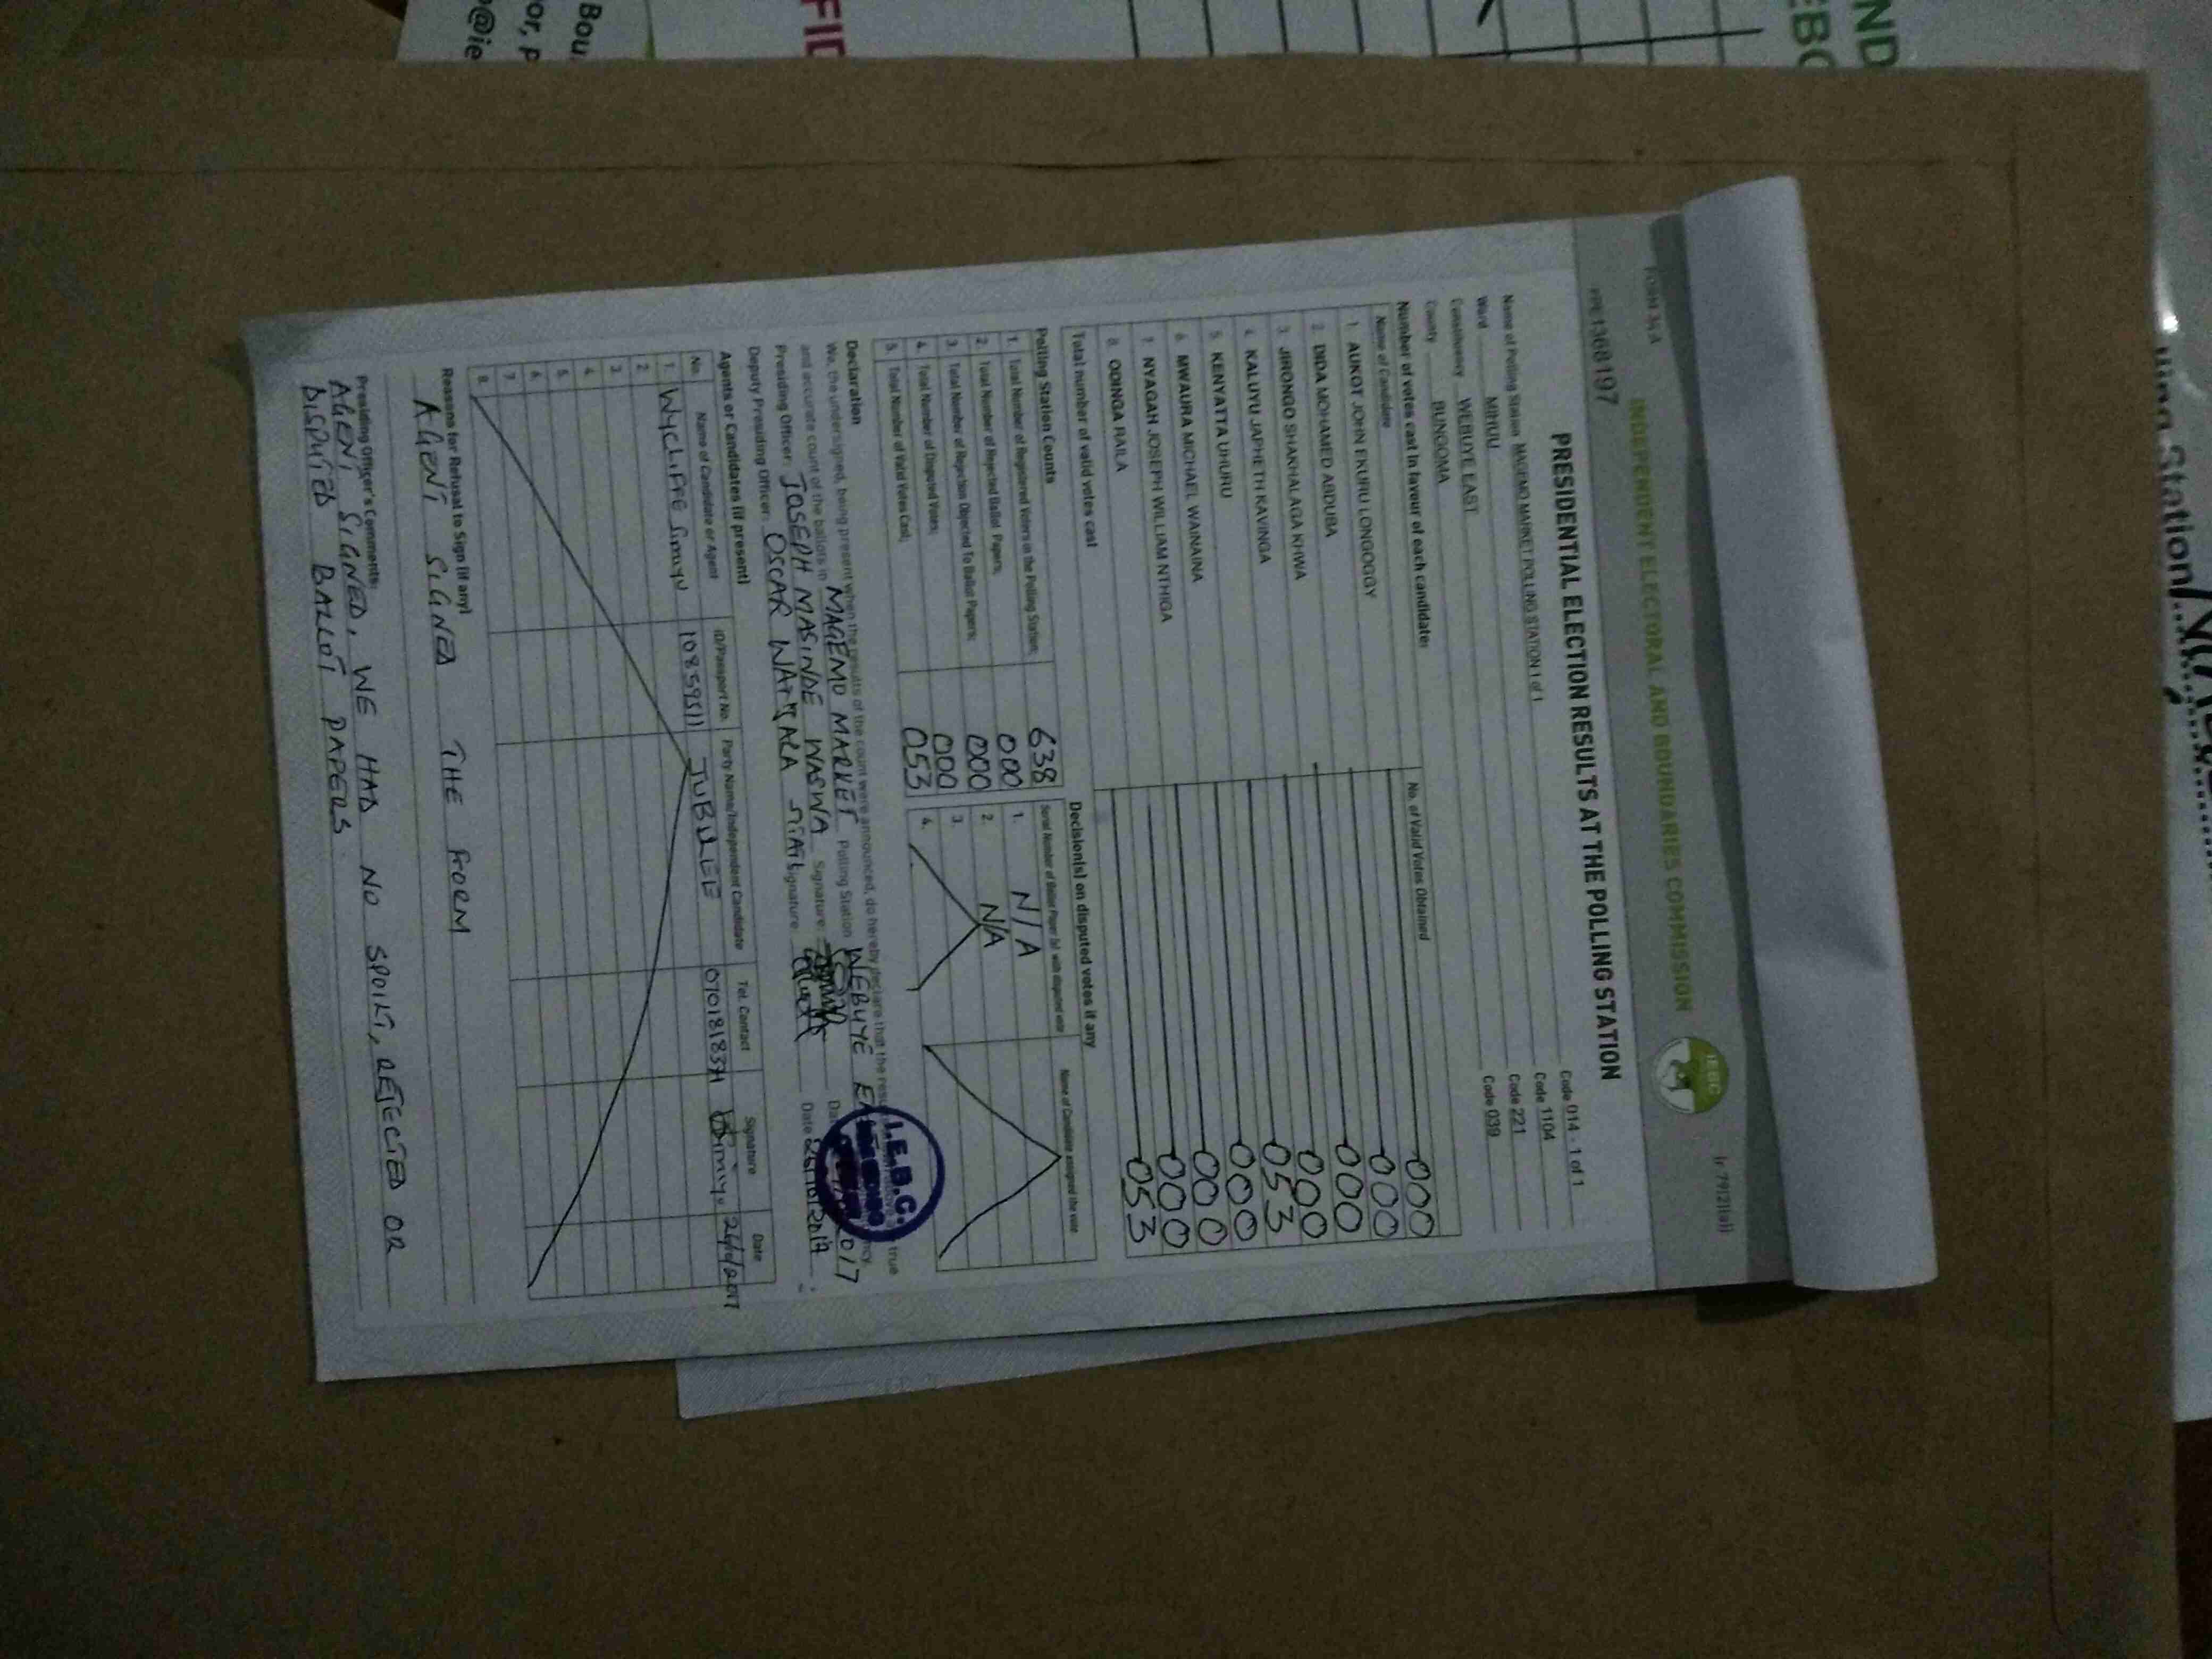 FORM 34A
Ir 79(2)(a))
INDEPENDENT ELECTORAL AND BOUNDARIES COMMISSION
IEBC
PRE1368197
PRESIDENTIAL ELECTION RESULTS AT THE POLLING STATION
Name of Polling Station MAGEMO MARKET POLLING STATION 1 of 1 Code 014 - 1 of 1
Ward MIHUU Code 1104
Constituency WEBUYE EAST Code 221
County BUNGOMA Code 039
Number of votes cast in favour of each candidate:
Name of Candidate No. of Valid Votes Obtained
1. AUKOT JOHN EKURU LONGOGGY 000
2. DIDA MOHAMED ABDUBA 000
3. JIRONGO SHAKHALAGA KHWA 000
4. KALUYU JAPHETH KAVINGA 000
5. KENYATTA UHURU 053
6. MWAURA MICHAEL WAINAINA 000
7. NYAGAH JOSEPH WILLIAM NTHIGA 000
8. ODINGA RAILA 000
Total number of valid votes cast 053
Polling Station Counts
1. Total Number of Registered Voters in the Polling Station; 638
2. Total Number of Rejected Ballot Papers; 000
3. Total Number of Rejection Objected To Ballot Papers; 000
4. Total Number of Disputed Votes; 000
5. Total Number of Valid Votes Cast; 053
Decision(s) on disputed votes if any
Serial Number of Ballot Paper (s) with disputed vote Name of Candidate assigned the vote
1. N/A
2. N/A
3.
4.
Declaration
We, the undersigned, being present when the results of the count were announced, do hereby declare that the true
and accurate count of the ballots in MAGEMO MARKET Polling Station WEBUYE
Presiding Officer: JOSEPH MASINDE WASWA Signature:
Deputy Presiding Officer: OSCAR Signature Date
I.E.B.C.
Agents or Candidates (if present)
No. Name of Candidate or Agent ID/Passport No. Party Name/Independent Candidate Tel. Contact Signature Date
1. WYCLIFFE Simiyu 10859511 JUBILEE
2.
3.
4.
5.
6.
7.
8.
Reasons for Refusal to Sign (if any)
AGENT SIGNED THE FORM
Presiding Officer's Comments:
AGENT SIGNED, WE HAD NO SPOILT, REJECTED OR
DISPUTED BALLOT PAPERS